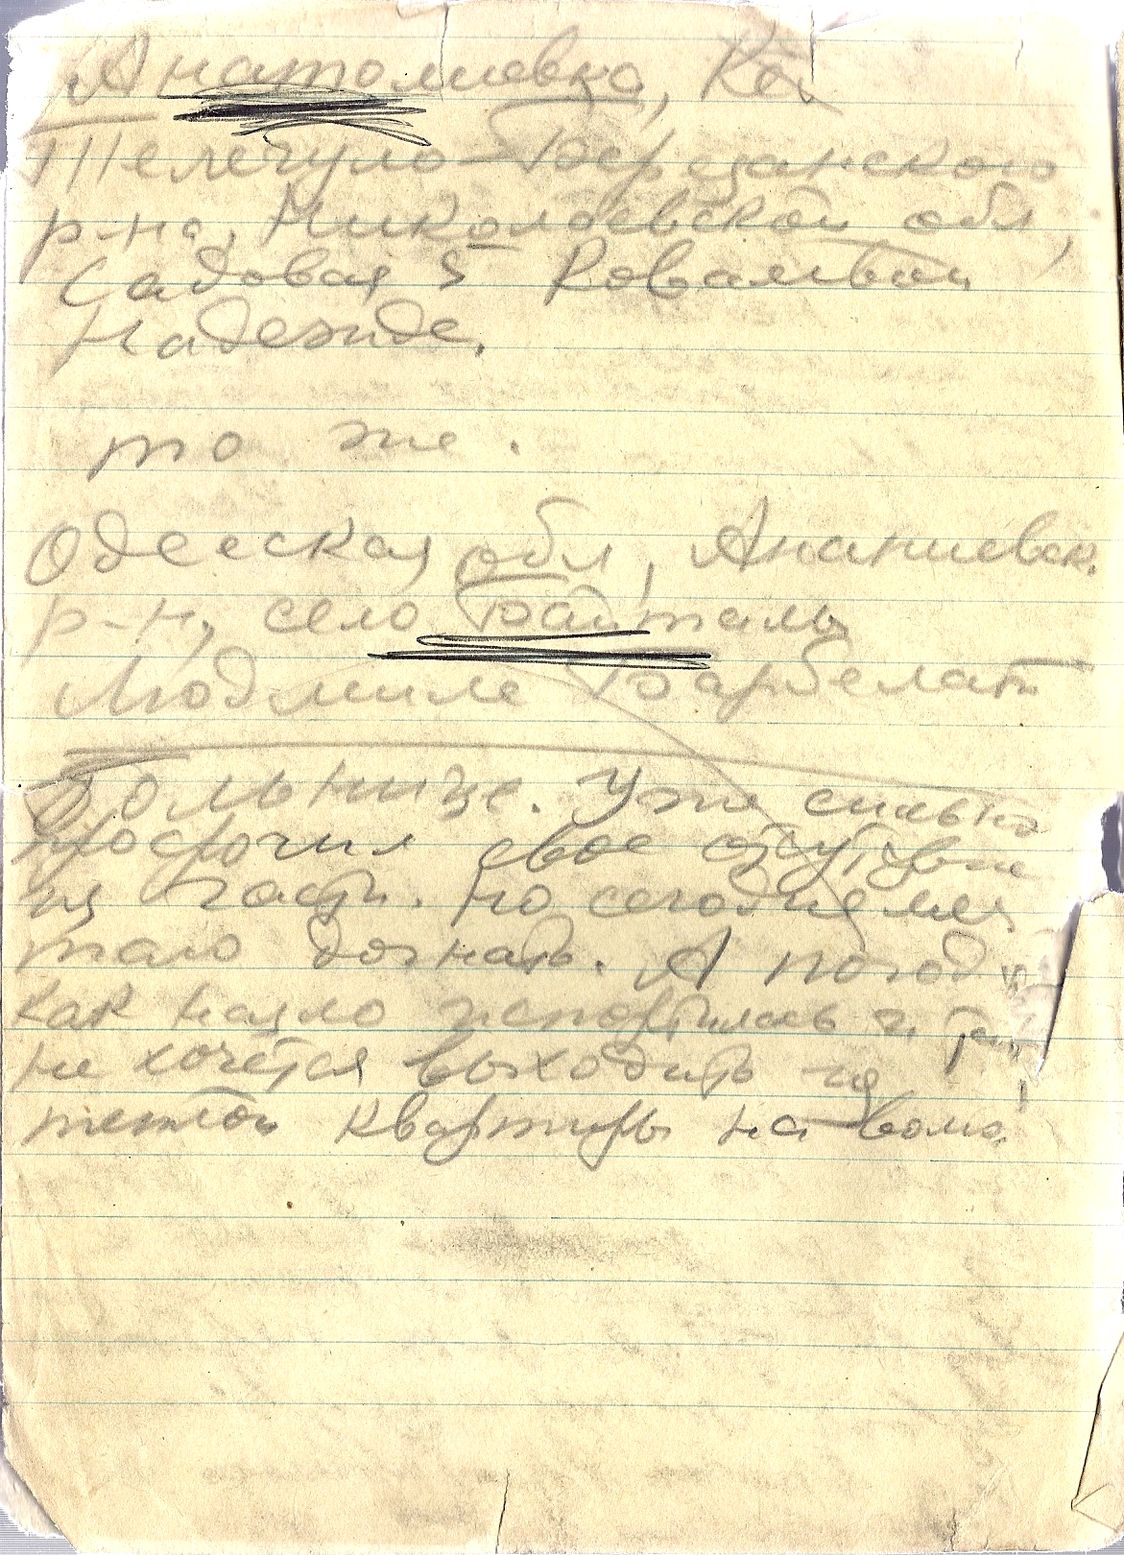 Анатолиевка,
Телегуло-Березанского
р-на, Николаевской обл,
Садовая 5 Ковалевой
Надежде.
то же.
Одесская обл, Ананиевск.
р-н, село Байталы
Людмиле Барбелат
Больнице. Уже сильно
просрочил свое отсутствие
из части. Но сегодня
надо догнать. А погода
как назло испортилась и
не хочется выходить из
теплой квартиры на